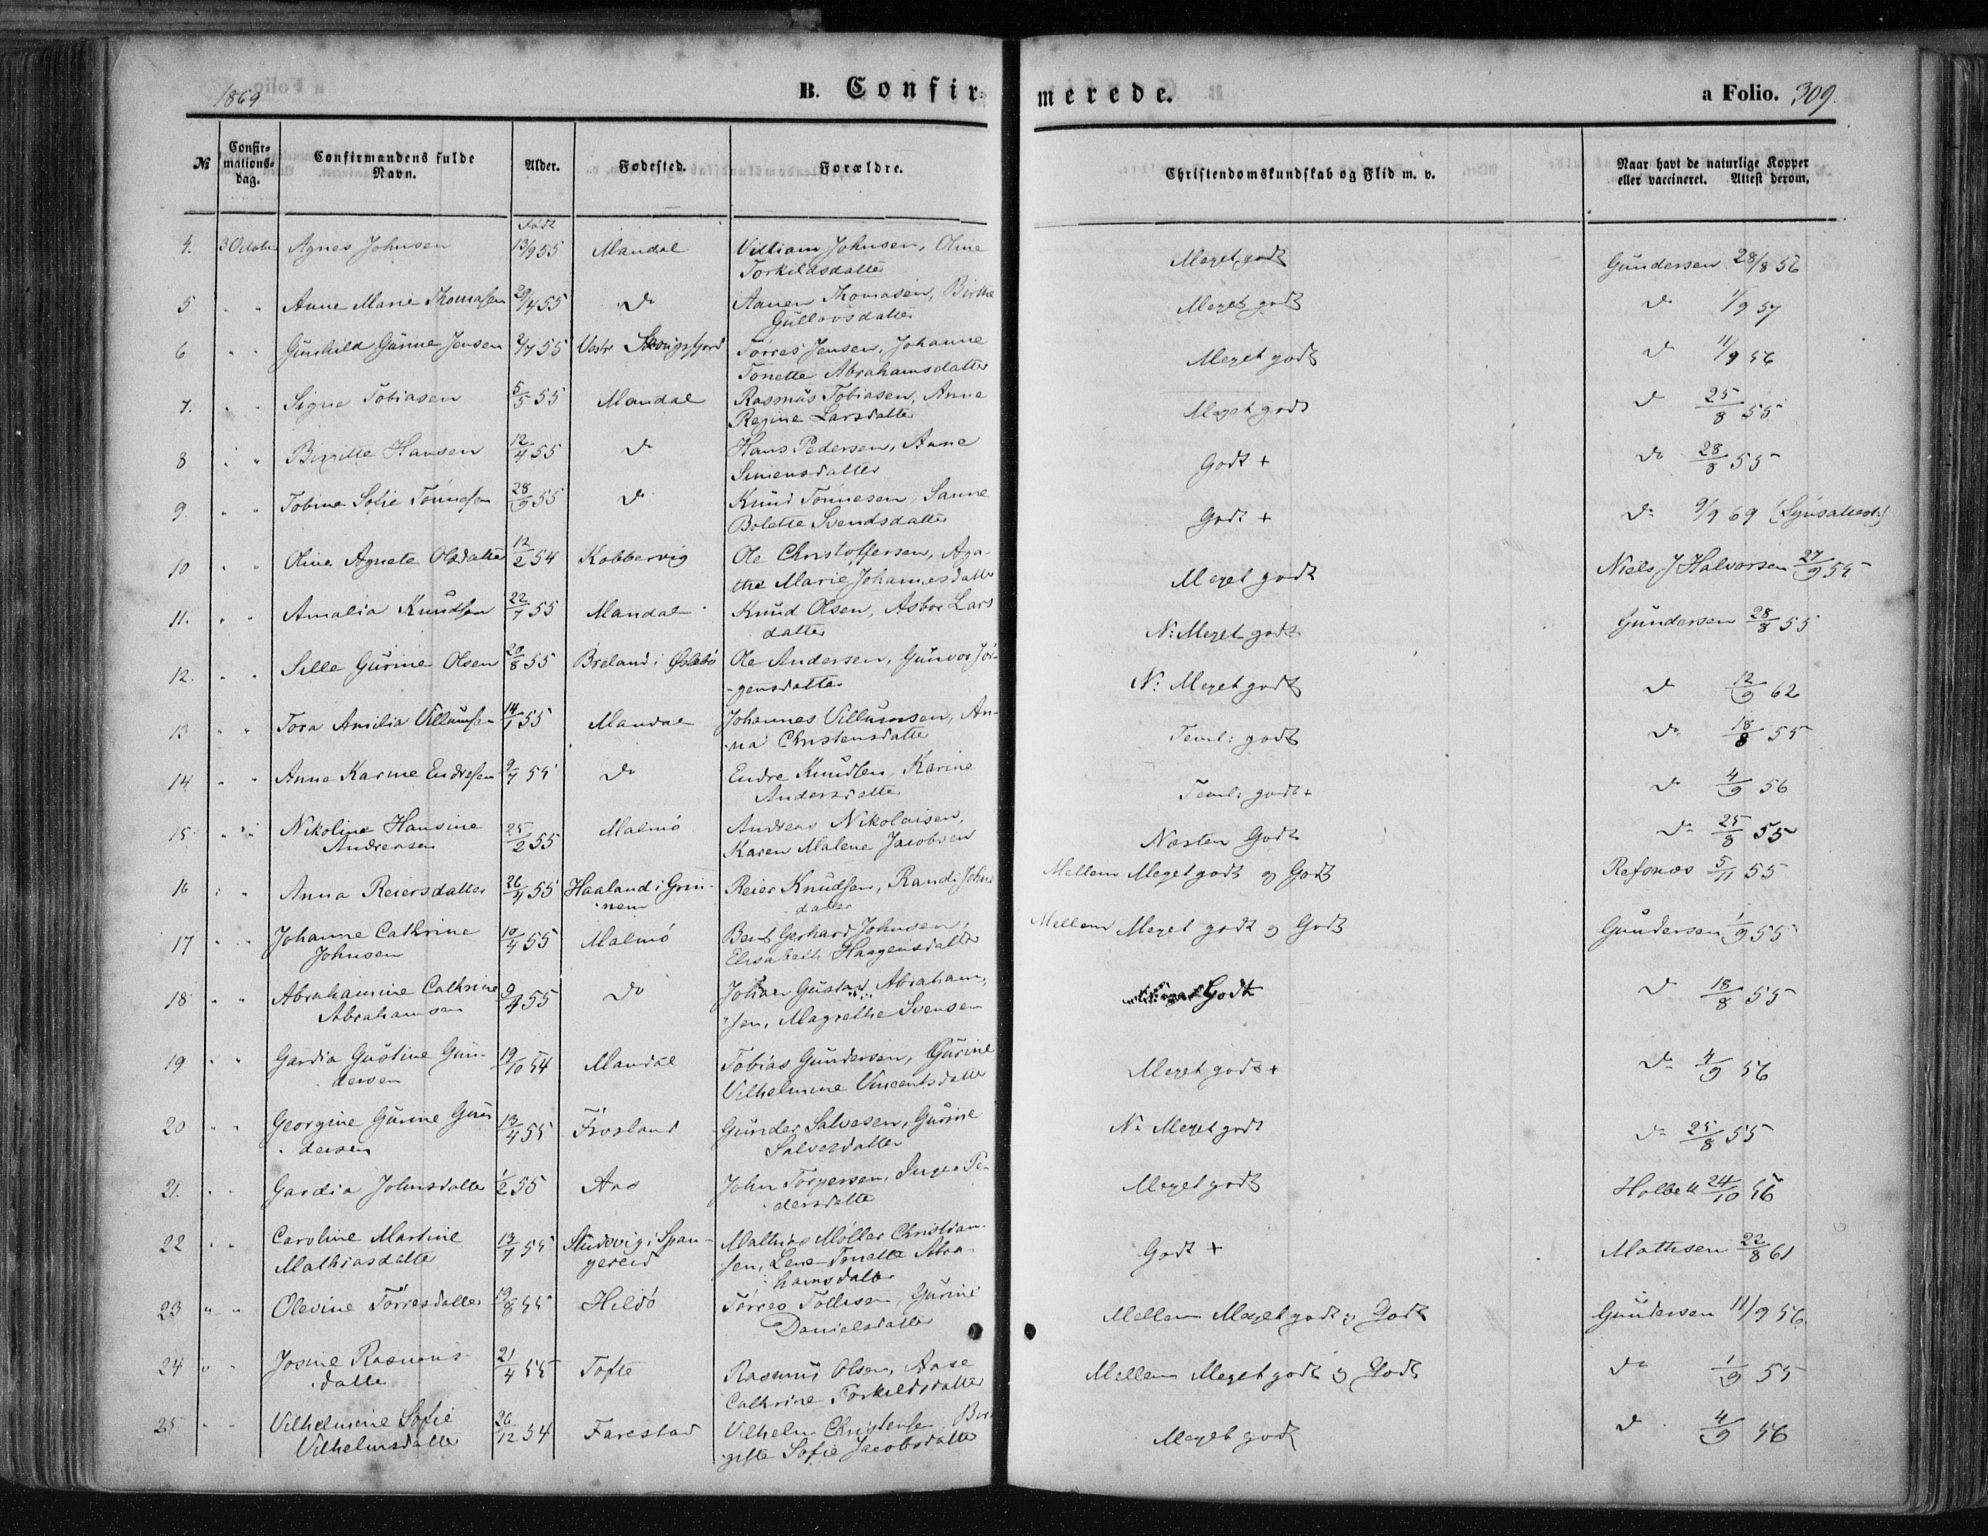 1869 B. Confir- merede. a Folio. 309.
№ Confir-mations-dag. Confirmandens fulde Navn. Alder. Fødested. Forældre. Christendomskundskab og Flid m. v. Naar havt de naturlige Kopper eller vaccineret. Attest derom.
Født
4. 3 Octobr Agnes Johnsen 13/9 55 Mandal Villiam Johnsen, Oline Meget godt Gundersen 28/8 56
Torkildsdatter
5 " " Anne Marie Thomasen 29/4 55 do Aanen Thomasen, Birthe Meget godt do 1/9 57
Gullovsdatter
6 " " Gunhild Gurine Jensen 2/7 55 Vestr Tørres Jensen, Johanne Meget godt do 11/9 56
Tonette Abrahamsdatter
7. " " Signe Tobiasen 5/5 55 Mandal Rasmus Tobiasen, Anne Meget godt do 25/8 55
Regine Larsdatter
8 " " Birgitte Hansen 12/4 55 do Hans Pedersen, Aane Godt + do 28/8 55
Simensdatter
9. " " Tobine Sofie Tønnesen 28/9 55 do Knud Tønnesen, Sanne Godt + do 9/9 69 (Synsattest)
Bolette Svendsdatter
10 " " Oline Agnete Olsdatter 12/2 54 Kobbervig Ole Christoffersen, Aga- Meget godt Niels J Halvorsen 27/9 55
the Marie Johannesdatter
11. " " Amalia Knudsen 22/7 55 Mandal Knud Olsen, Asbor Lars N: Meget godt Gundersen 28/8 55
datter
12. " " Sille Gurine Olsen 20/8 55 Breland i Øslebø Ole Andersen, Gunvor Jør- N: Meget godt do 12/9 62
-gensdatter
13 " " Tora Amilia Villumsen 14/1 55 Mandal Johannes Villumsen, An- Teml: godt do 18/8 55
-na Christensdatter
14 " " Anne Karine Endresen 9/7 55 do Endre Knudsen, Karine Teml: godt + do 4/9 56
Andersdatter
15 " " Nikoline Hansine 25/2 55 Malmø Andreas Nikolaisen, Næsten Godt do 25/8 55
Andreasen Karen Malene Jacobsen
16 " " Anna Reiersdatter 26/4 55 Haaland i Grin- Reier Knudsen, Randi Johns Mellem Meget godt og Godt Refsnæs 5/11 55
nem datter
17 " " Johanne Cathrine 10/4 55 Malmø Bent Gerhard Johnsen, Mellem Meget godt og Godt Gundersen 1/9 55
Johnsen Elisabeth Haagensdatter
18 " " Abrahamine Cathrine 9/4 55 do Johan Gustav Abraham- Godt do 18/8 55
Abrahamsen sen, Magrethe Svensen
19 " " Gardia Gustine Gun- 19/10 54 Mandal Tobias Gundersen, Gurine Meget godt + do 4/9 56
dersen Vilhelmine Vincentsdatter
20 " " Georgine Gurine Gun 13/4 55 Frøsland Gunder Salvesen, Gurine N: Meget godt do 25/8 55
dersen Salvesdatter
21. " " Gardia Johnsdatter 1/2 55 Aas John Torgersen, Inger Pe- Meget godt Holbek 24/10 56
dersdatter
22 " " Caroline Martine 13/7 55 Studevig i Span- Mathias Møller Christian- Godt + Mathsen 22/8 61
Mathiasdatter gereid sen, Lene Tonette Abra-
hamsdatter
23 " " Olevine Tørresdatter 19/8 55 Hildø Tørres Tollisen, Gurine Mellem Meget godt og Godt Gundersen 11/9 56
Danielsdatter
24 " " Josine Rasmus- 21/4 55 Tofte Rasmus Olsen, Aase Mellem Meget godt og Godt do 1/9 55
datter Cathrine Torkildsdatter
25 " " Vilhelmine Sofie 26/12 54 Farestad Vilhelm Christensen, Bir- Meget godt do 4/9 56
Vilhelmsdatter gitte Sofie Jacobsdatter